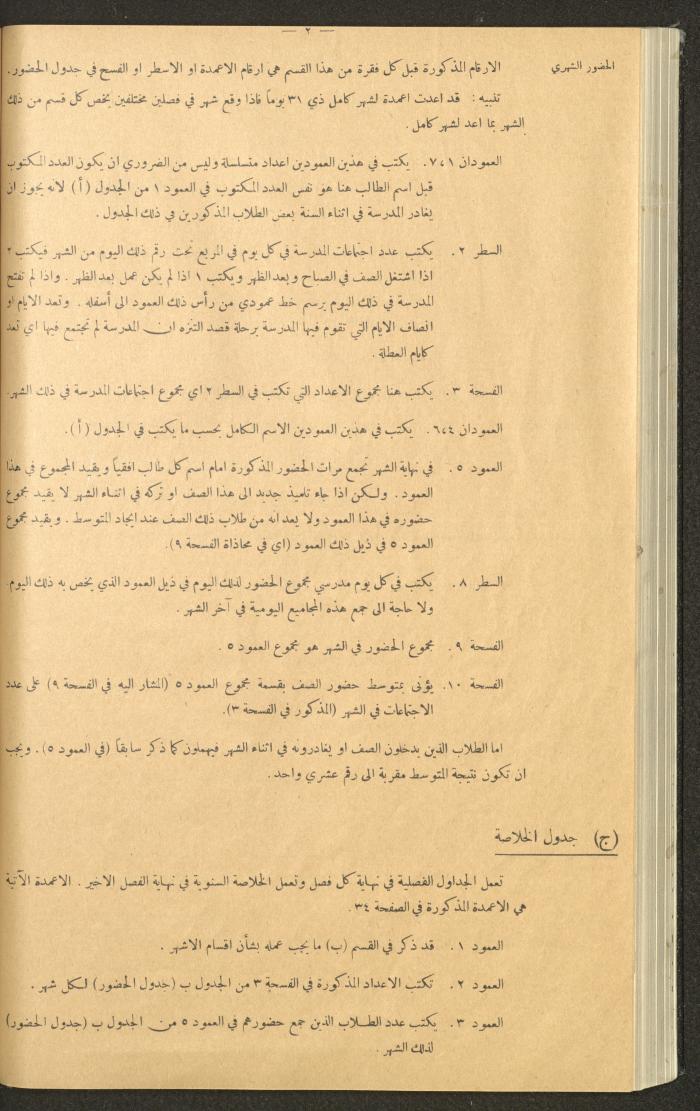 — ٢ —
الحضور الشهري
الارقام المذكورة قبل كل فقرة من هذا القسم هي ارقام الاعمدة او الاسطر او الفسح في جدول الحضور.
تنبيه : قد اعدت اعمدة لشهر كامل ذي ٣١ يوماً فاذا وقع شهر في فصلين مختلفين يخص كل قسم من ذلك
الشهر بما اعد لشهر كامل .
العمودان ٧،١. يكتب في هذين العمودين اعداد متسلسلة وليس من الضروري ان يكون العدد المكتوب
قبل اسم الطالب هنا هو نفس العدد المكتوب في العمود ١ من الجدول (أ) لانه يجوز ان
يغادر المدرسة في اثناء السنة بعض الطلاب المذكورين في ذلك الجدول .
السطر ٢. يكتب عدد اجتماعات المدرسة في كل يوم في المربع تحت رقم ذلك اليوم من الشهر فيكتب ٢
اذا اشتغل الصف في الصباح وبعد الظهر ويكتب ١ اذا لم يكن عمل بعد الظهر . واذا لم تفتح
المدرسة في ذلك اليوم يرسم خط عمودي من رأس ذلك العمود الى أسفله . وتعد الايام او
انصاف الايام التي تقوم فيها المدرسة برحلة قصد التنزه ان المدرسة لم تجتمع فيها اي تعد
كايام العطلة .
الفسحة ٣. يكتب هنا مجموع الاعداد التي تكتب في السطر ٢ اي مجموع اجتماعات المدرسة في ذلك الشهر.
العمودان ٦،٤. يكتب في هذين العمودين الاسم الكامل بحسب ما يكتب في الجدول (أ).
العمود ٥. في نهاية الشهر تجمع مرات الحضور المذكورة امام اسم كل طالب افقياً ويقيد المجموع في هذا
العمود . ولكن اذا جاء تلميذ جديد الى هذا الصف او تركه في اثناء الشهر لا يقيد مجموع
حضوره في هذا العمود ولا يعد انه من طلاب ذلك الصف عند ايجاد المتوسط . ويقيد مجموع
العمود ٥ في ذيل ذلك العمود (اي في محاذاة الفسحة ٩).
السطر ٨. يكتب في كل يوم مدرسي مجموع الحضور لذلك اليوم في ذيل العمود الذي يخص به ذلك اليوم.
ولا حاجة الى جمع هذه المجاميع اليومية في آخر الشهر .
الفسحة ٩. مجموع الحضور في الشهر هو مجموع العمود ٥ .
الفسحة ١٠. يؤتى بمتوسط حضور الصف بقسمة مجموع العمود ٥ (المشار اليه في الفسحة ٩) على عدد
الاجتماعات في الشهر (المذكور في الفسحة ٣).
اما الطلاب الذين يدخلون الصف او يغادرونه في اثناء الشهر فيهملون كما ذكر سابقاً (في العمود ٥). ويجب
ان تكون نتيجة المتوسط مقربة الى رقم عشري واحد.
(ج) جدول الخلاصة
تعمل الجداول الفصلية في نهاية كل فصل وتعمل الخلاصة السنوية في نهاية الفصل الاخير . الاعمدة الآتية
هي الاعمدة المذكورة في الصفحة ٣٤.
العمود ١. قد ذكر في القسم (ب) ما يجب عمله بشأن اقسام الاشهر .
العمود ٢. تكتب الاعداد المذكورة في الفسحة ٣ من الجدول ب (جدول الحضور) لكل شهر .
العمود ٣. يكتب عدد الطلاب الذين جمع حضورهم في العمود ٥ من الجدول ب (جدول الحضور)
لذلك الشهر .